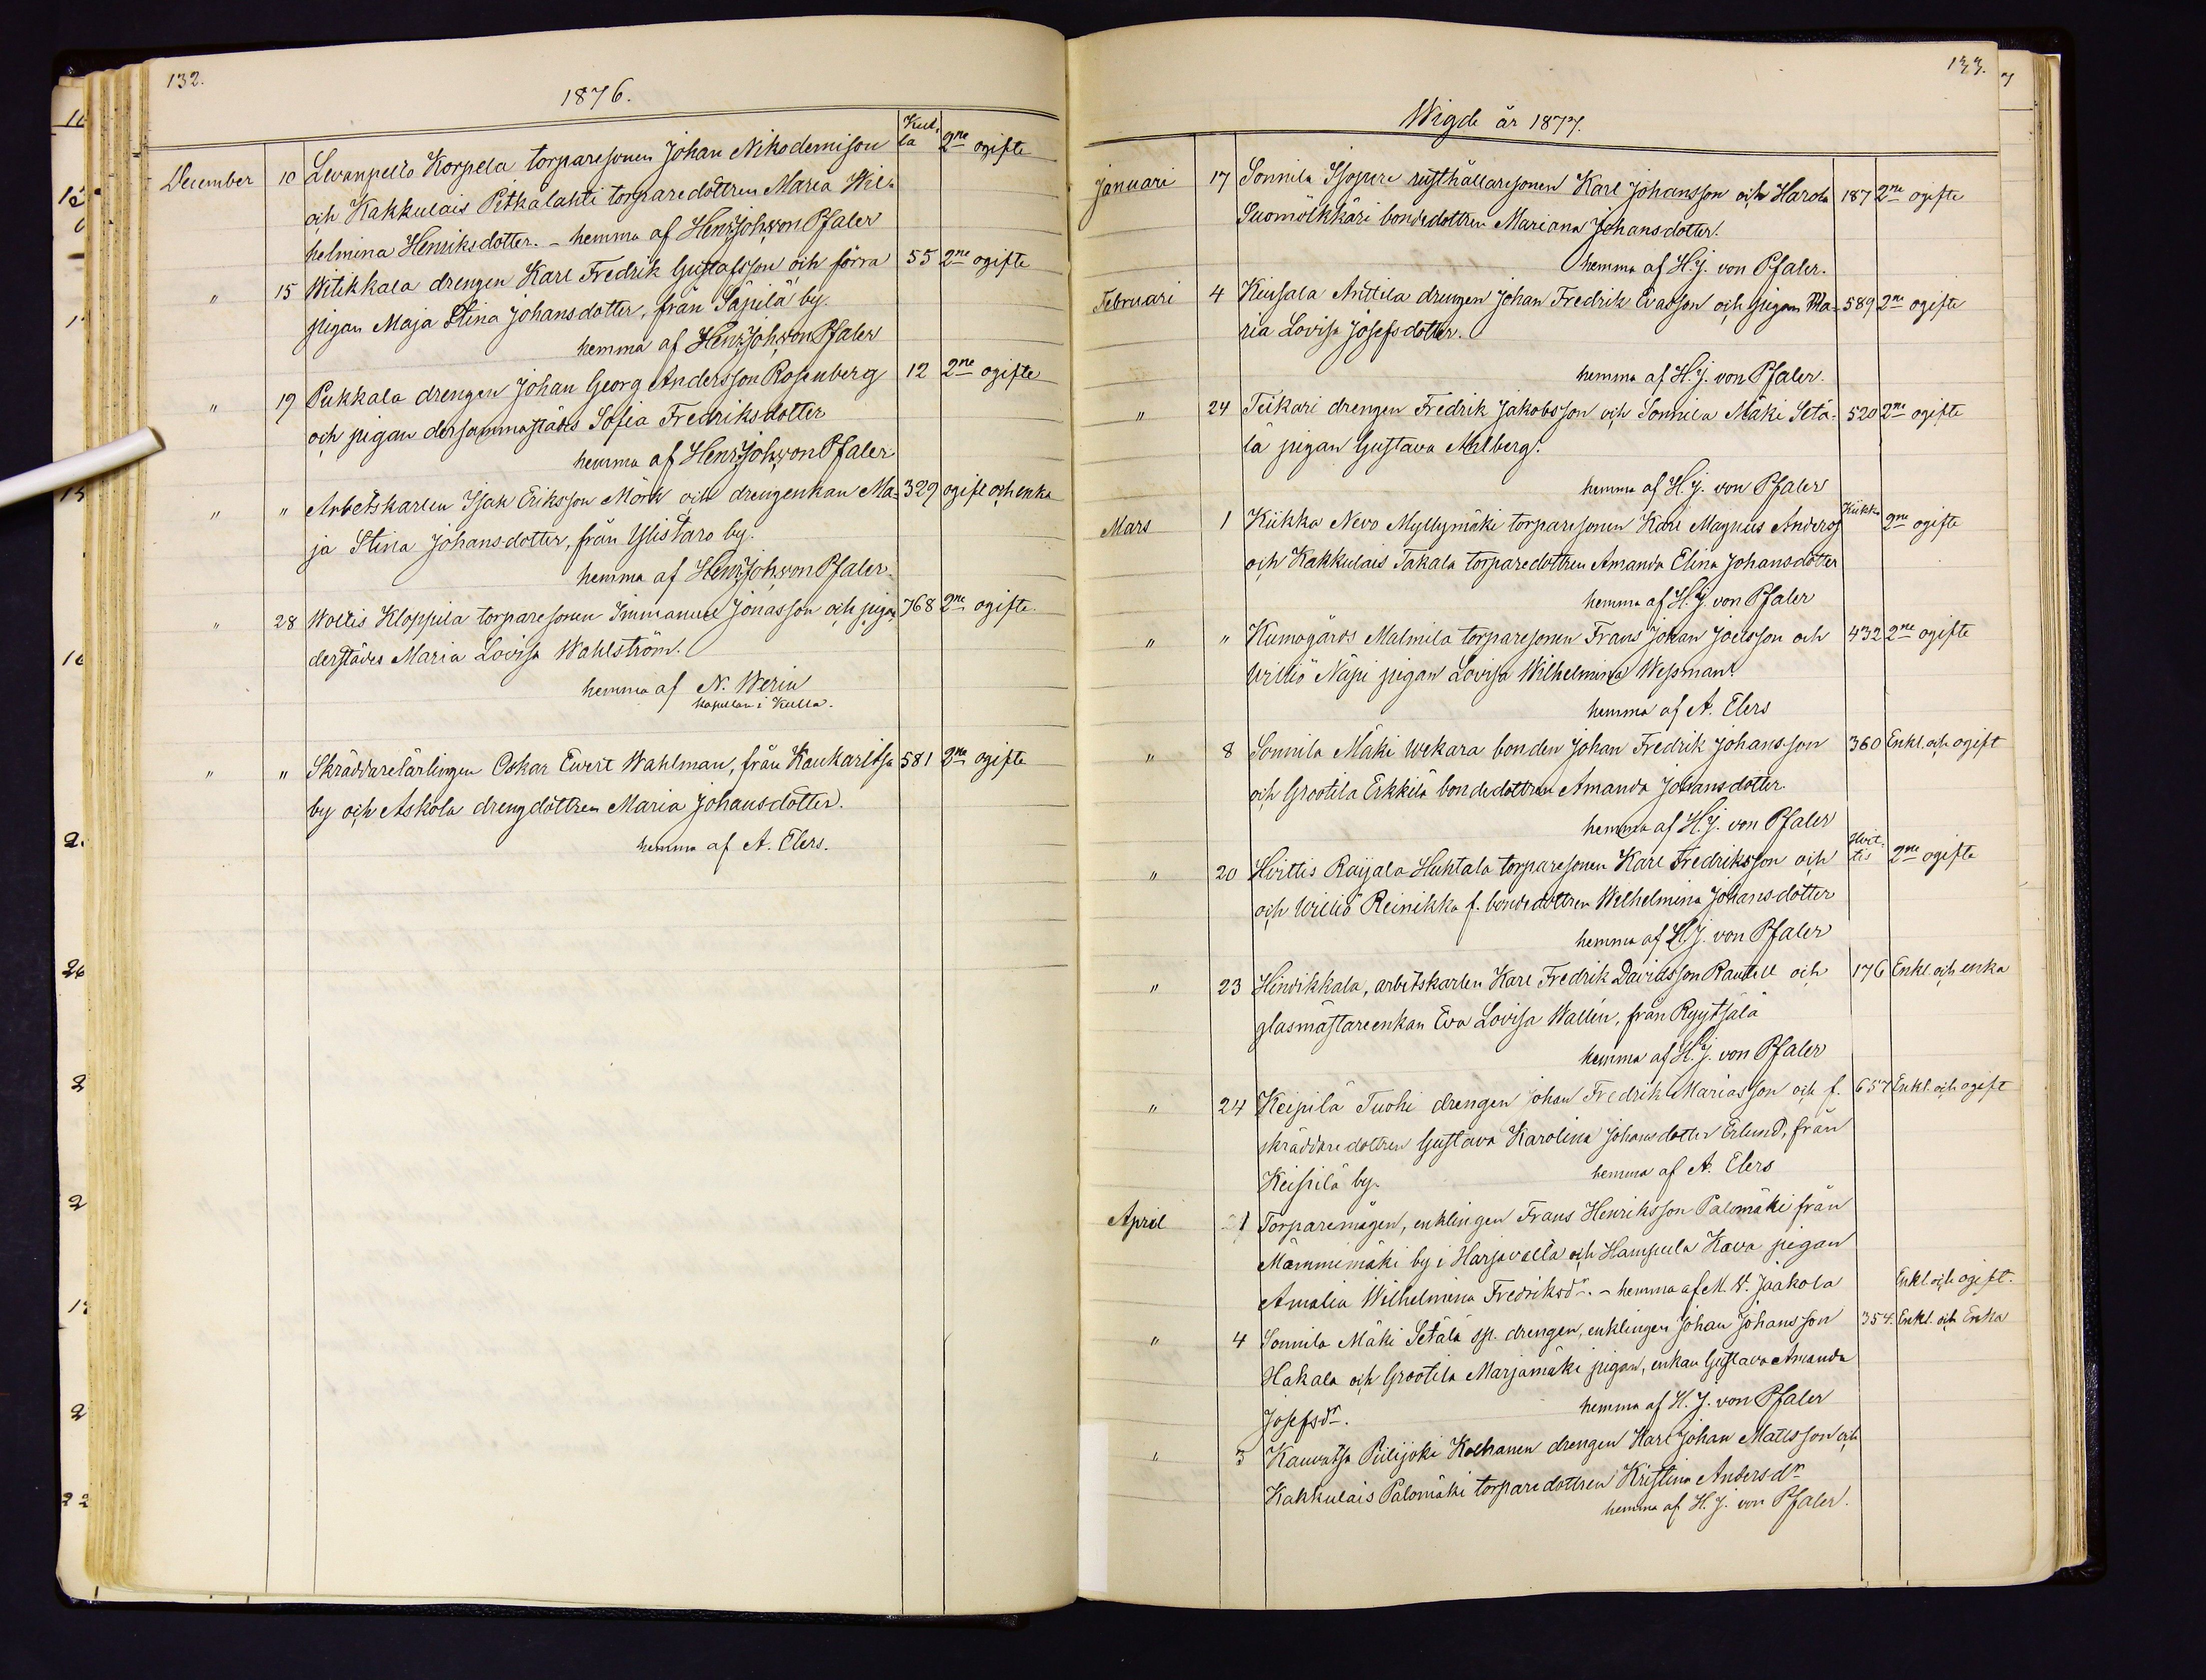 132.
1876.
December 10 Levanpelto Korpela torparesonen Johan Nikodemisson Kul,la 2ne ogifte
och Kakkulais Pitkälahti torparedottren Maria Wil-
helmina Henriksdotter. - hemma af Henr. Joh. von Pfaler
" 15 Witikkala drengen Karl Fredrik Gustafsson och förra 55 2ne ogifte
pigan Maja Stina Johansdotter, från Säpilä by.
hemma af Henr. Joh. von Pfaler
" 19 Pukkala drengen Johan Georg Andersson Rosenberg 12 2ne ogifte
och pigan dersammastädes Sofia Fredriksdotter
hemma af Henr. Joh. von Pfaler
" " Arbetskarlen Isak Eriksson Mörk och drengenkan Ma- 329 ogift och enka
ja Stina Johansdotter, från Ylistaro by.
hemma af Henr. Joh. von Pfaler.
" 28 Woitis Kloppila torparesonen Immanuel Jonasson och pigan 768 2ne ogifte
derstädes Maria Lovisa Wahlström.
hemma af N. Werin
kapellan i Kulla.
" " Skräddarelärlingen Oskar Ewert Wahlman, från Kaukaritsa 581 2ne ogifte
by och Askola drengdottren Maria Johansdotter.
hemma af A. Elers.
133.
Wigde år 1877.
Januari 17 Sonnila Isopere rusthållaresonen Karl Johansson och Harola 187 2ne ogifte
Suomölkkäri bondedottren Mariana Johansdotter.
hemma af H. J. von Pfaler.
Februari 4 Keusala Anttila drengen Johan Fredrik Evasson och pigan Ma- 589 2ne ogifte
ria Lovisa Josefsdotter.
hemma af H. J. von Pfaler.
" 24 Tiikari drengen Fredrik Jakobsson och Sonnila Mäki Setä- 520 2ne ogifte
lä pigan Gustava Melberg.
hemma af H. J. von Pfaler
Mars 1 Kiikka Nevo Myllymäki torparesonen Karl Magnus Anderss. Kiikka 2ne ogifte
och Kakkulais Takala torparedottren Amanda Elina Johansdotter
hemma af H. J. von Pfaler
" " Kumogårds Malmila torparesonen Frans Johan Joelsson och 432 2ne ogifte
Williö Näpi pigan Lovisa Wilhelmina Wessman.
hemma af A. Elers
" 8 Sonnila Mäki Wekara bonden Johan Fredrik Johansson 360 Enkl. och ogift
och Grootila Erkkilä bondedottren Amanda Johansdotter.
hemma af H. J. von Pfaler
" 20 Hvittis Raijala Huhtala torparesonen Karl Fredriksson och Hvit-tis 2ne ogifte
och Williö Reinikka f. bondedottren Wilhelmina Johansdotter
hemma af H. J. von Pfaler
" 23 Hindikkala, arbetskarlen Karl Fredrik Davidsson Rautell och 176 Enkl. och enka
glasmästareenkan Eva Lovisa Wallén, från Ryytsälä
hemma af H. J. von Pfaler
" 24 Keipilä Tuohi drengen Johan Fredrik Mariasson och f. 657 Enkl. och ogift
skräddaredottren Gustava Karolina Johansdotter Erlund, från
Keipilä by. hemma af A. Elers
April 1 Torparemågen, enklingen Frans Henriksson Palomäki från
Mämmimäki by i Harjavalta och Hampula Kava pigan
Amalia Wilhelmina Fredriksdr. - hemma af M. W. Jaakola Enkl. och ogift.
" 4 Sonnila Mäki Setälä sp. drengen, enklingen Johan Johansson 354. Enkl. och Enka
Hakala och Grootila Marjamäki pigan, enkan Gustava Amanda
Josefsdr. hemma af H. J. von Pfaler
" 3 Kauvatsa Piilijoki Kolhanen drengen Karl Johan Matsson och
Kakkulais Palomäki torparedottren Kristina Andersdr
hemma af H. J. von Pfaler.